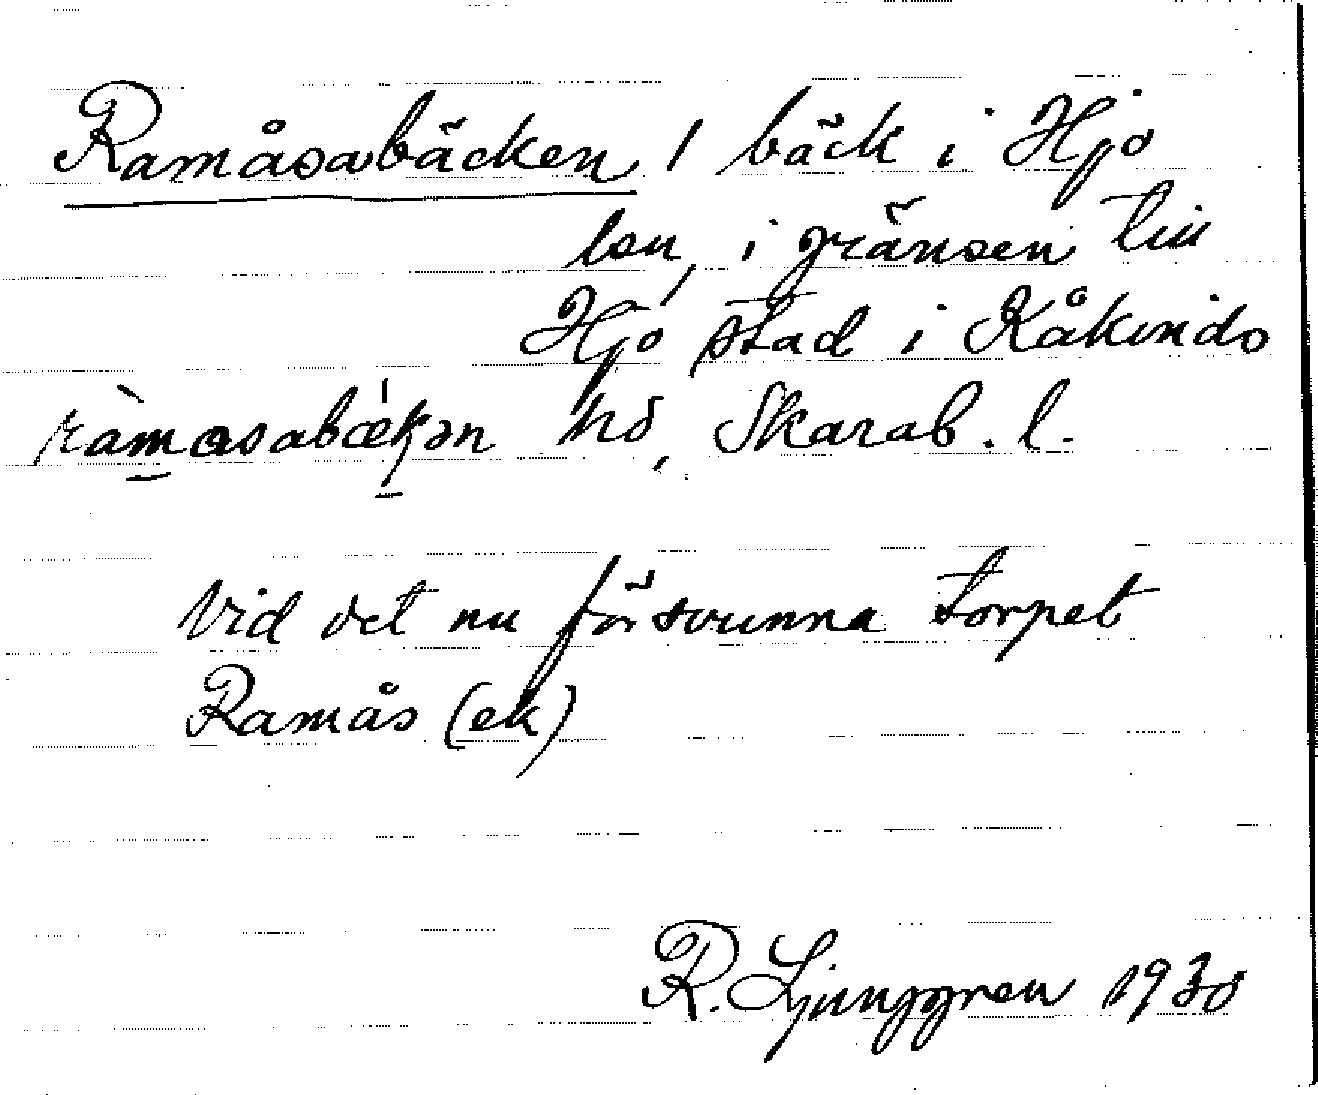 Ramåsabäcken / bäck i Hjo
lsn, i gränsen till
Hjo stad i Kåkinds
ràmasabækən hd, Skarab. l.
Vid det nu försvunna torpet
Ramås (ek)
R. Ljunggren 1930